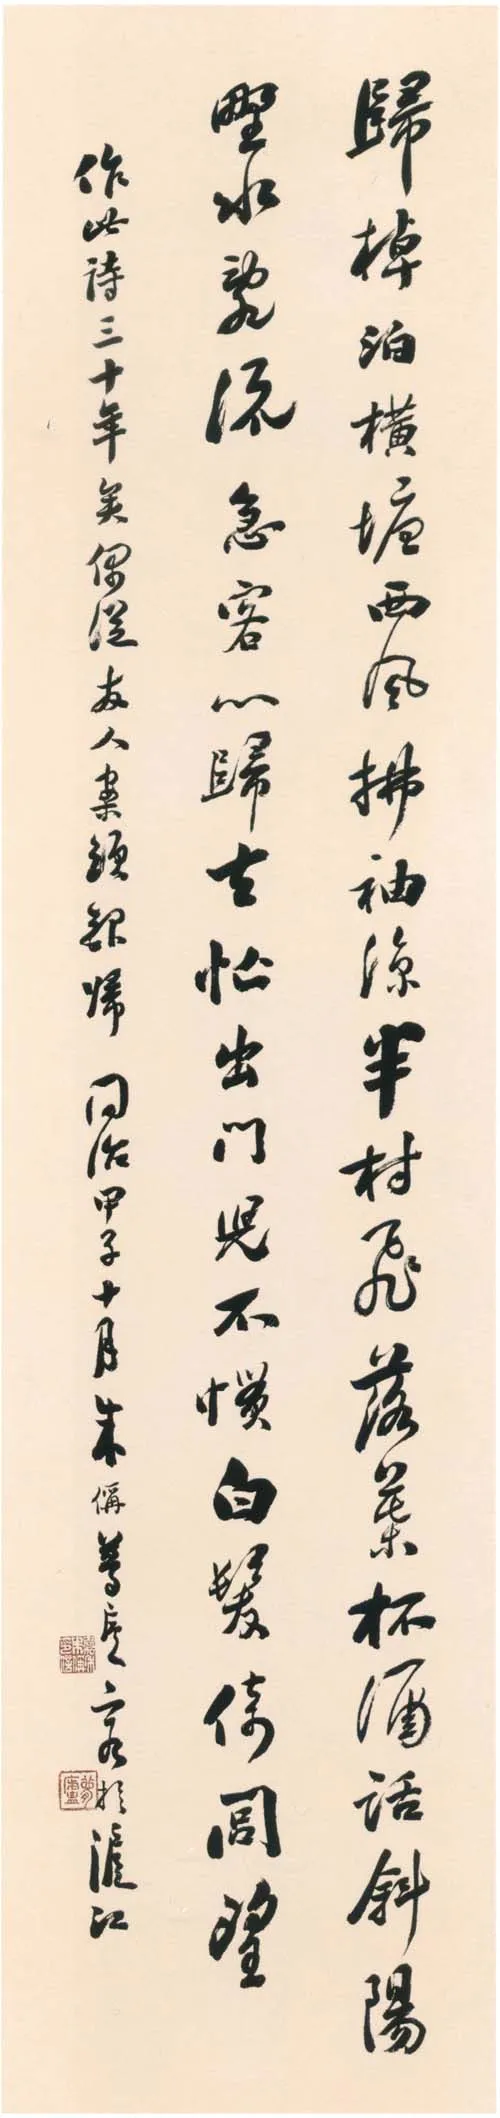 歸棹泊橫塘西風拂袖涼半村飛落葉杯酒話斜陽
野水亂流急客心歸去忙出門兒不慣白髮倚閭望
作此詩三十年矣偶從友人案頭歸同治甲子十月朱偁夢廬客於滬江